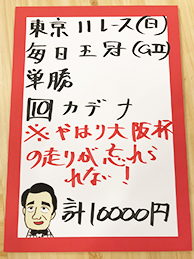 東京11レース(日)
毎日王冠(GII)
単勝
10 カデナ
※やはり大阪杯
の走りが忘れら
れない!
計10000円